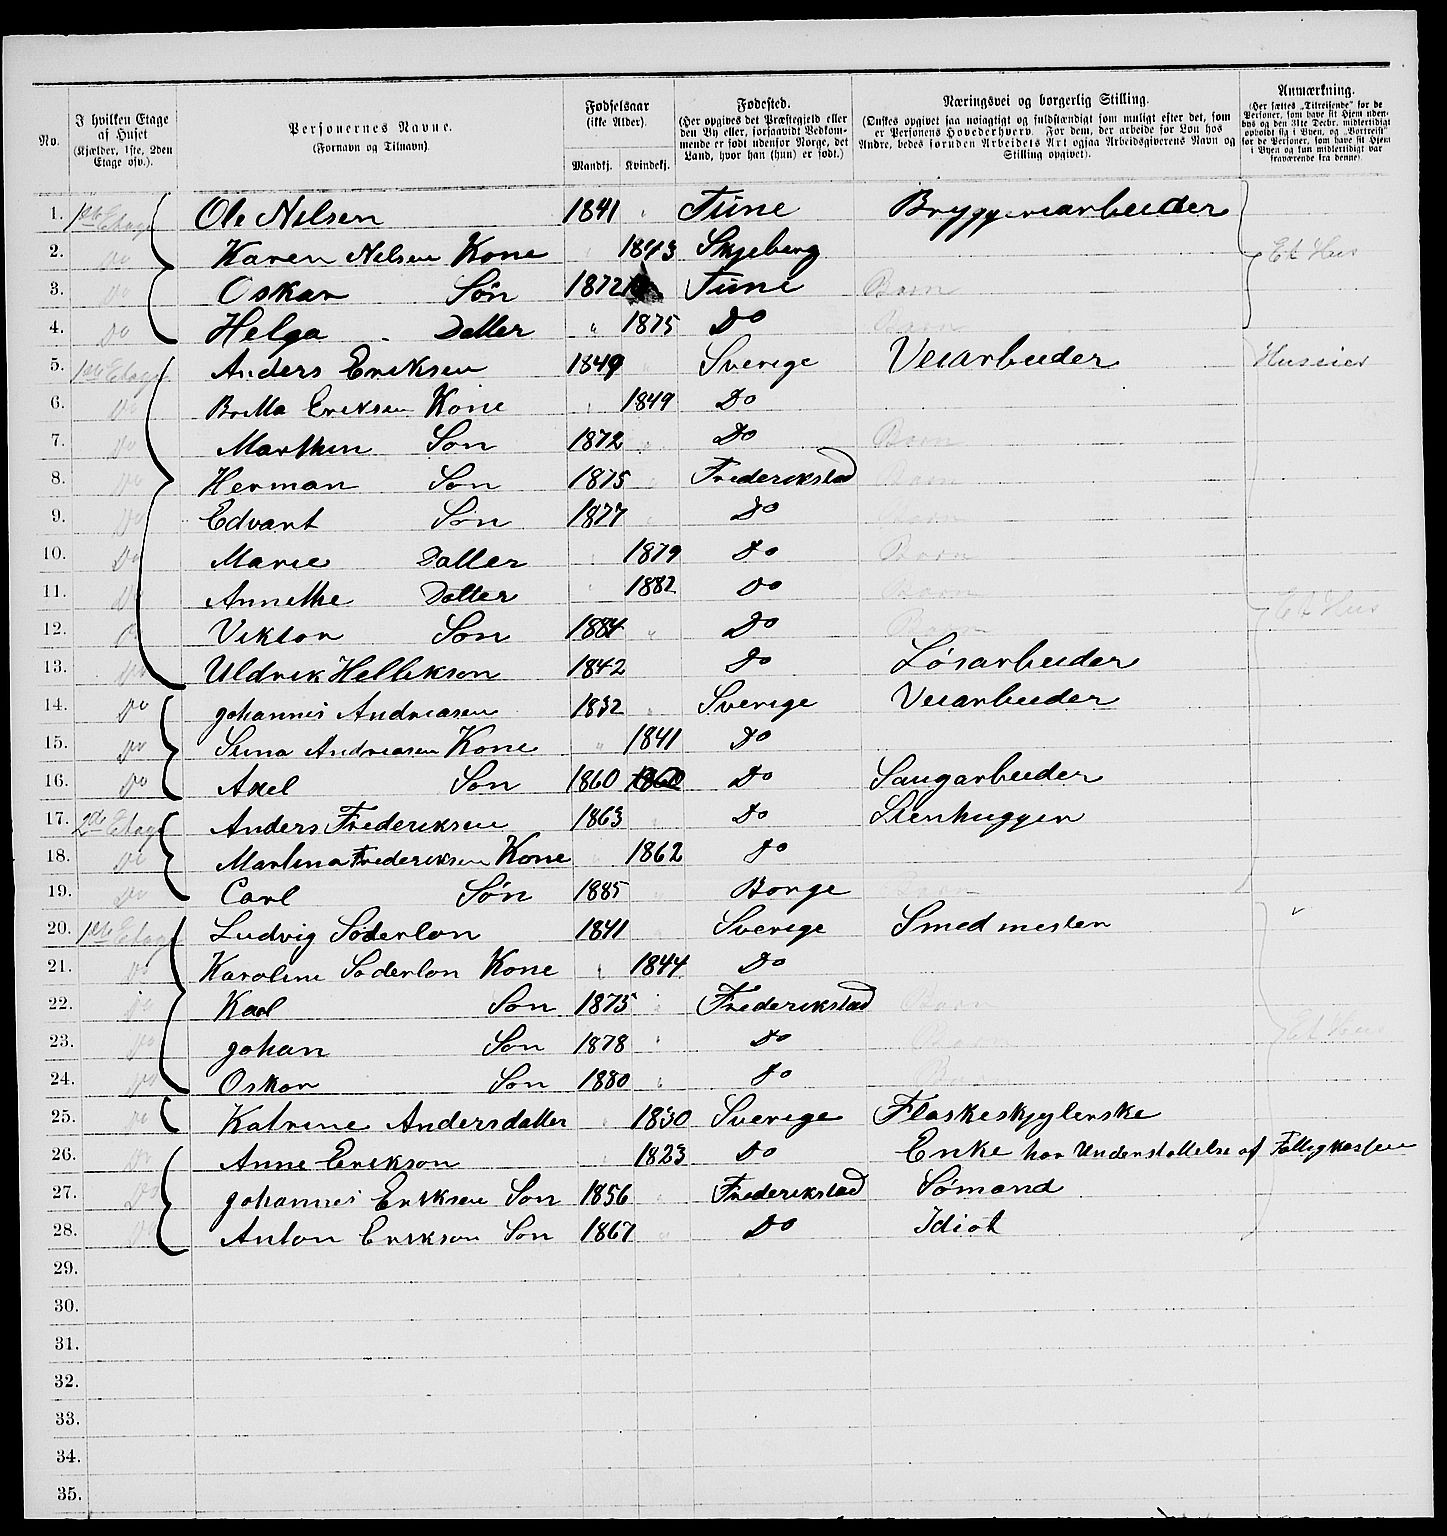 No.
I hvilken Etage af Huset (Kjælder, 1ste, 2den Etage osv.).
Personernes Navne. (Fornavn og Tilnavn).
Fødselsaar (ikke Alder). Mandkj. Kvindekj.
Fødested. (Her opgives det Præstegjeld eller den By eller, forsaavidt Vedkommende er født udenfor Norge, det Land, hvor han (hun) er født.)
Næringsvei og borgerlig Stilling. (Ønskes opgivet saa nøiagtigt og fuldstændigt som muligt efter det, som er Personens Hovederhverv. For dem, der arbeide for Løn hos Andre, bedes foruden Arbeidets Art ogsaa Arbeidsgiverens Navn og Stilling opgivet).
Anmærkning. (Her sættes „Tilreisende“ for de Personer, som have sit Hjem udenbys og den 31te Decbr. midlertidigt opholdt sig i Byen, og „Bortreist“ for de Personer, som have sit Hjem i Byen og kun midlertidigt var fraværende fra denne).
1. 1ste Etage Ole Nilsen 1841 " Tune Bryggeriarbeider
2. Do Karen Nilsen Kone " 1843 Skjeberg Et Hus
3. Do Oskar Søn 1872 Tune Barn
4. Do Helga Datter " 1875 Do Barn
5. 1ste Etage Anders Eriksen 1849 " Sverige Veiarbeider Huseier
6. Do Britta Eriksen Kone " 1849 Do
7. Do Marthin Søn 1872 " Do Barn
8. Do Herman Søn 1875 " Frederikstad Barn
9. Do Edvart Søn 1877 " Do Barn
10. Do Marie Datter " 1879 Do Barn
11. Do Annethe Datter " 1882 Do Barn
Et Hus
12. Do Viktor Søn 1884 " Do Barn
13. Do Uldrik Hellikson 1842 Do Løsarbeider
14. Do Johannes Andreasen 1832 " Sverige Veiarbeider
15. Do Stina Andreasen Kone " 1841 Do
16. Do Axel Søn 1860 1860 Do Saugarbeider
17. 2den Etage Anders Frederiksen 1863 " Do Stenhugger
18. Do Martina Frederiksen Kone " 1862 Do
19. Do Carl Søn 1885 " Borge Barn
20. 1ste Etage Ludvig Søderlon 1841 " Sverige Smedmester "
21. Do Karoline Søderlon Kone " 1844 Do
22. Do Karl Søn 1875 " Frederikstad Barn
23. Do Johan Søn 1878 " Do Barn Et Hus
24. Do Oskar Søn 1880 " Do Barn
25. Do Katrine Andersdatter " 1830 Sverige Flaskeskyllerske
26. Do Anne Erikson 1823 Do Enke har Understøttelse af Fattigkassen
27. Do Johannes Eriksen Søn 1856 " Frederikstad Sømand
28. Do Anton Erikson Søn 1867 " Do Idiot
29.
30.
31.
32.
33.
34.
35.